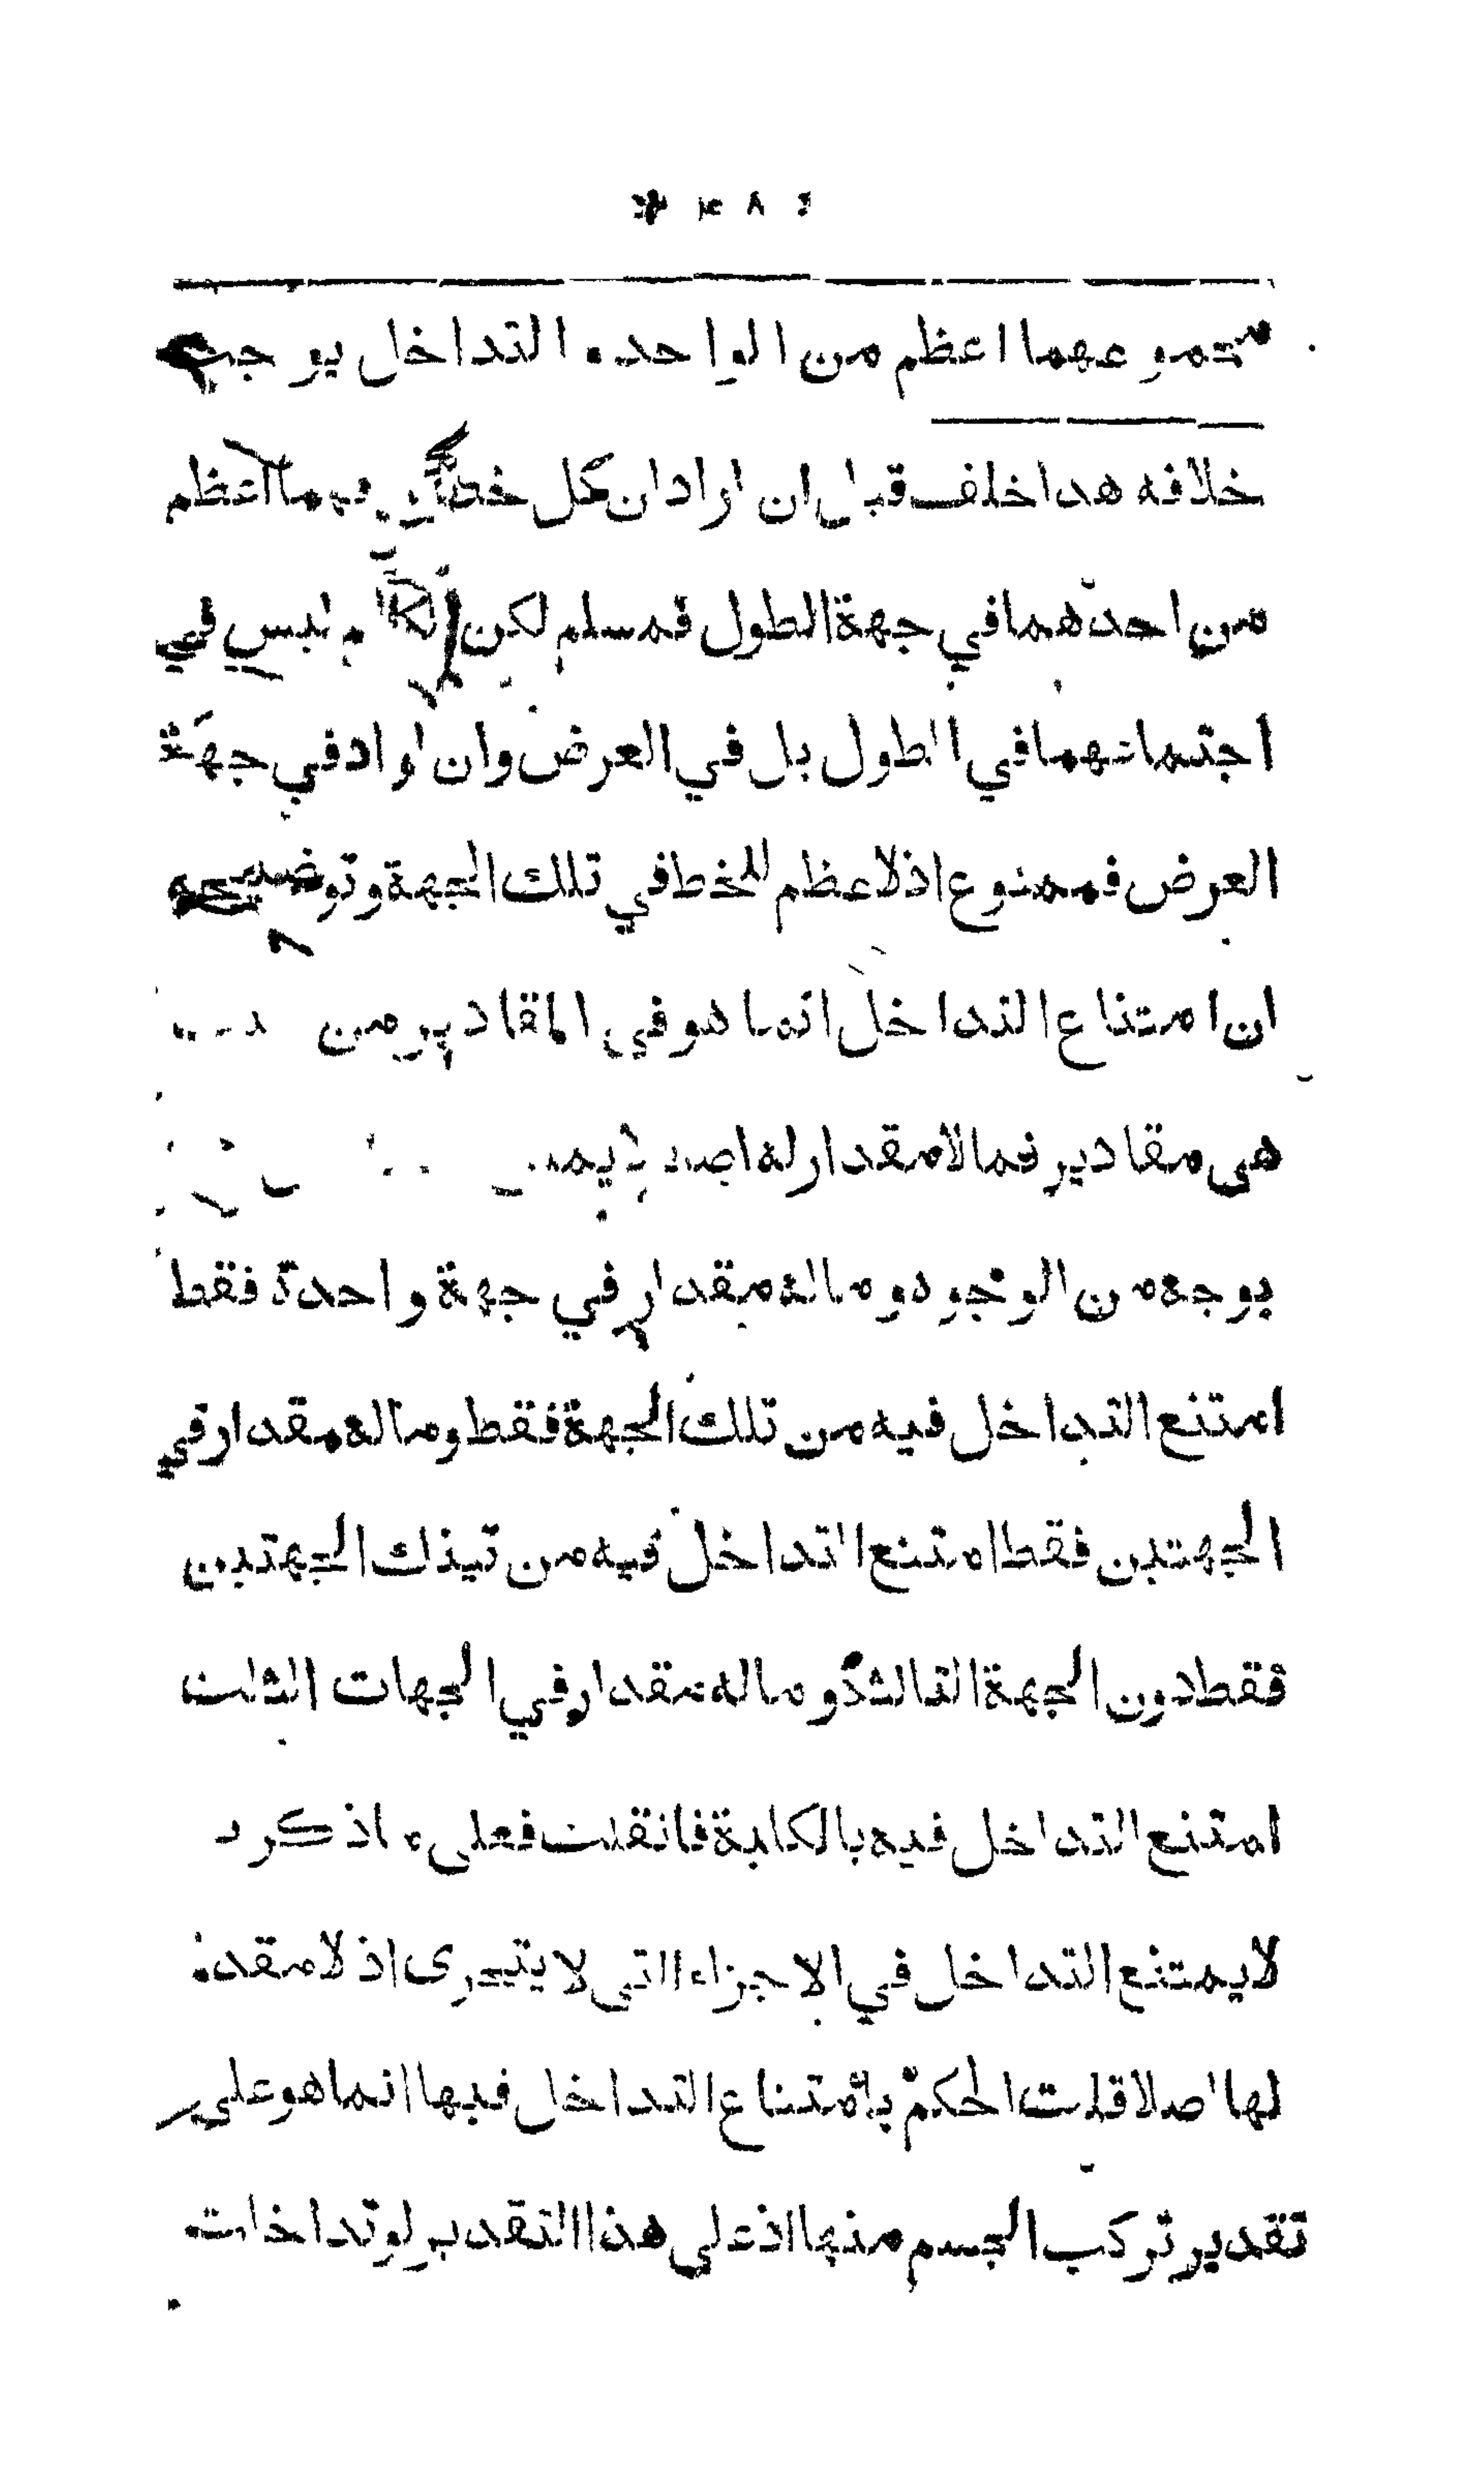 مجموعهما اعظم من الواحد و التداخل يوجب
خلافه هذا خلف قيل ان اراد ان كل خطين فهما اعظم
من احدهما في جهة الطول فمسلم لكن الكلام ليس في
اجتماعهما في الطول بل في العرض وان اراد في جهة
العرض فممنوع اذ لا عظم للخط في تلك الجهة وتوضيحه
ان امتناع التداخل انما هو في المقادير من
هي مقادير فما لا مقدار له اصلا
بوجه من الوجوه وما له مقدار في جهة واحدة فقط
امتنع التداخل فيه من تلك الجهة فقط وما له مقدار في
الجهتين فقط امتنع التداخل فيه من تينك الجهتين
فقط دون الجهة الثالثة وما له مقدار في الجهات الثلث
امتنع التداخل فيه بالكلية فان قلت فعلى
لا يمتنع التداخل في الاجزاء التي لا يتجزى اذ لا مقدار
لها اصلا قلت الحكم بامتناع التداخل فيها انما هو على
تقدير تركب الجسم منها اذ على هذا التقدير لو تداخلت